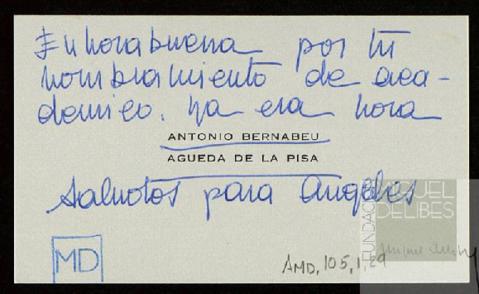 Enhorabuena por tu
nombramiento de aca-
demico. ya era hora
ANTONIO BERNABEU
AGUEDA DE LA PISA
Saludos para Angeles
MD
AMD, 105, 1, 29
FUNDACIÓN
MIGUEL
DELIBES